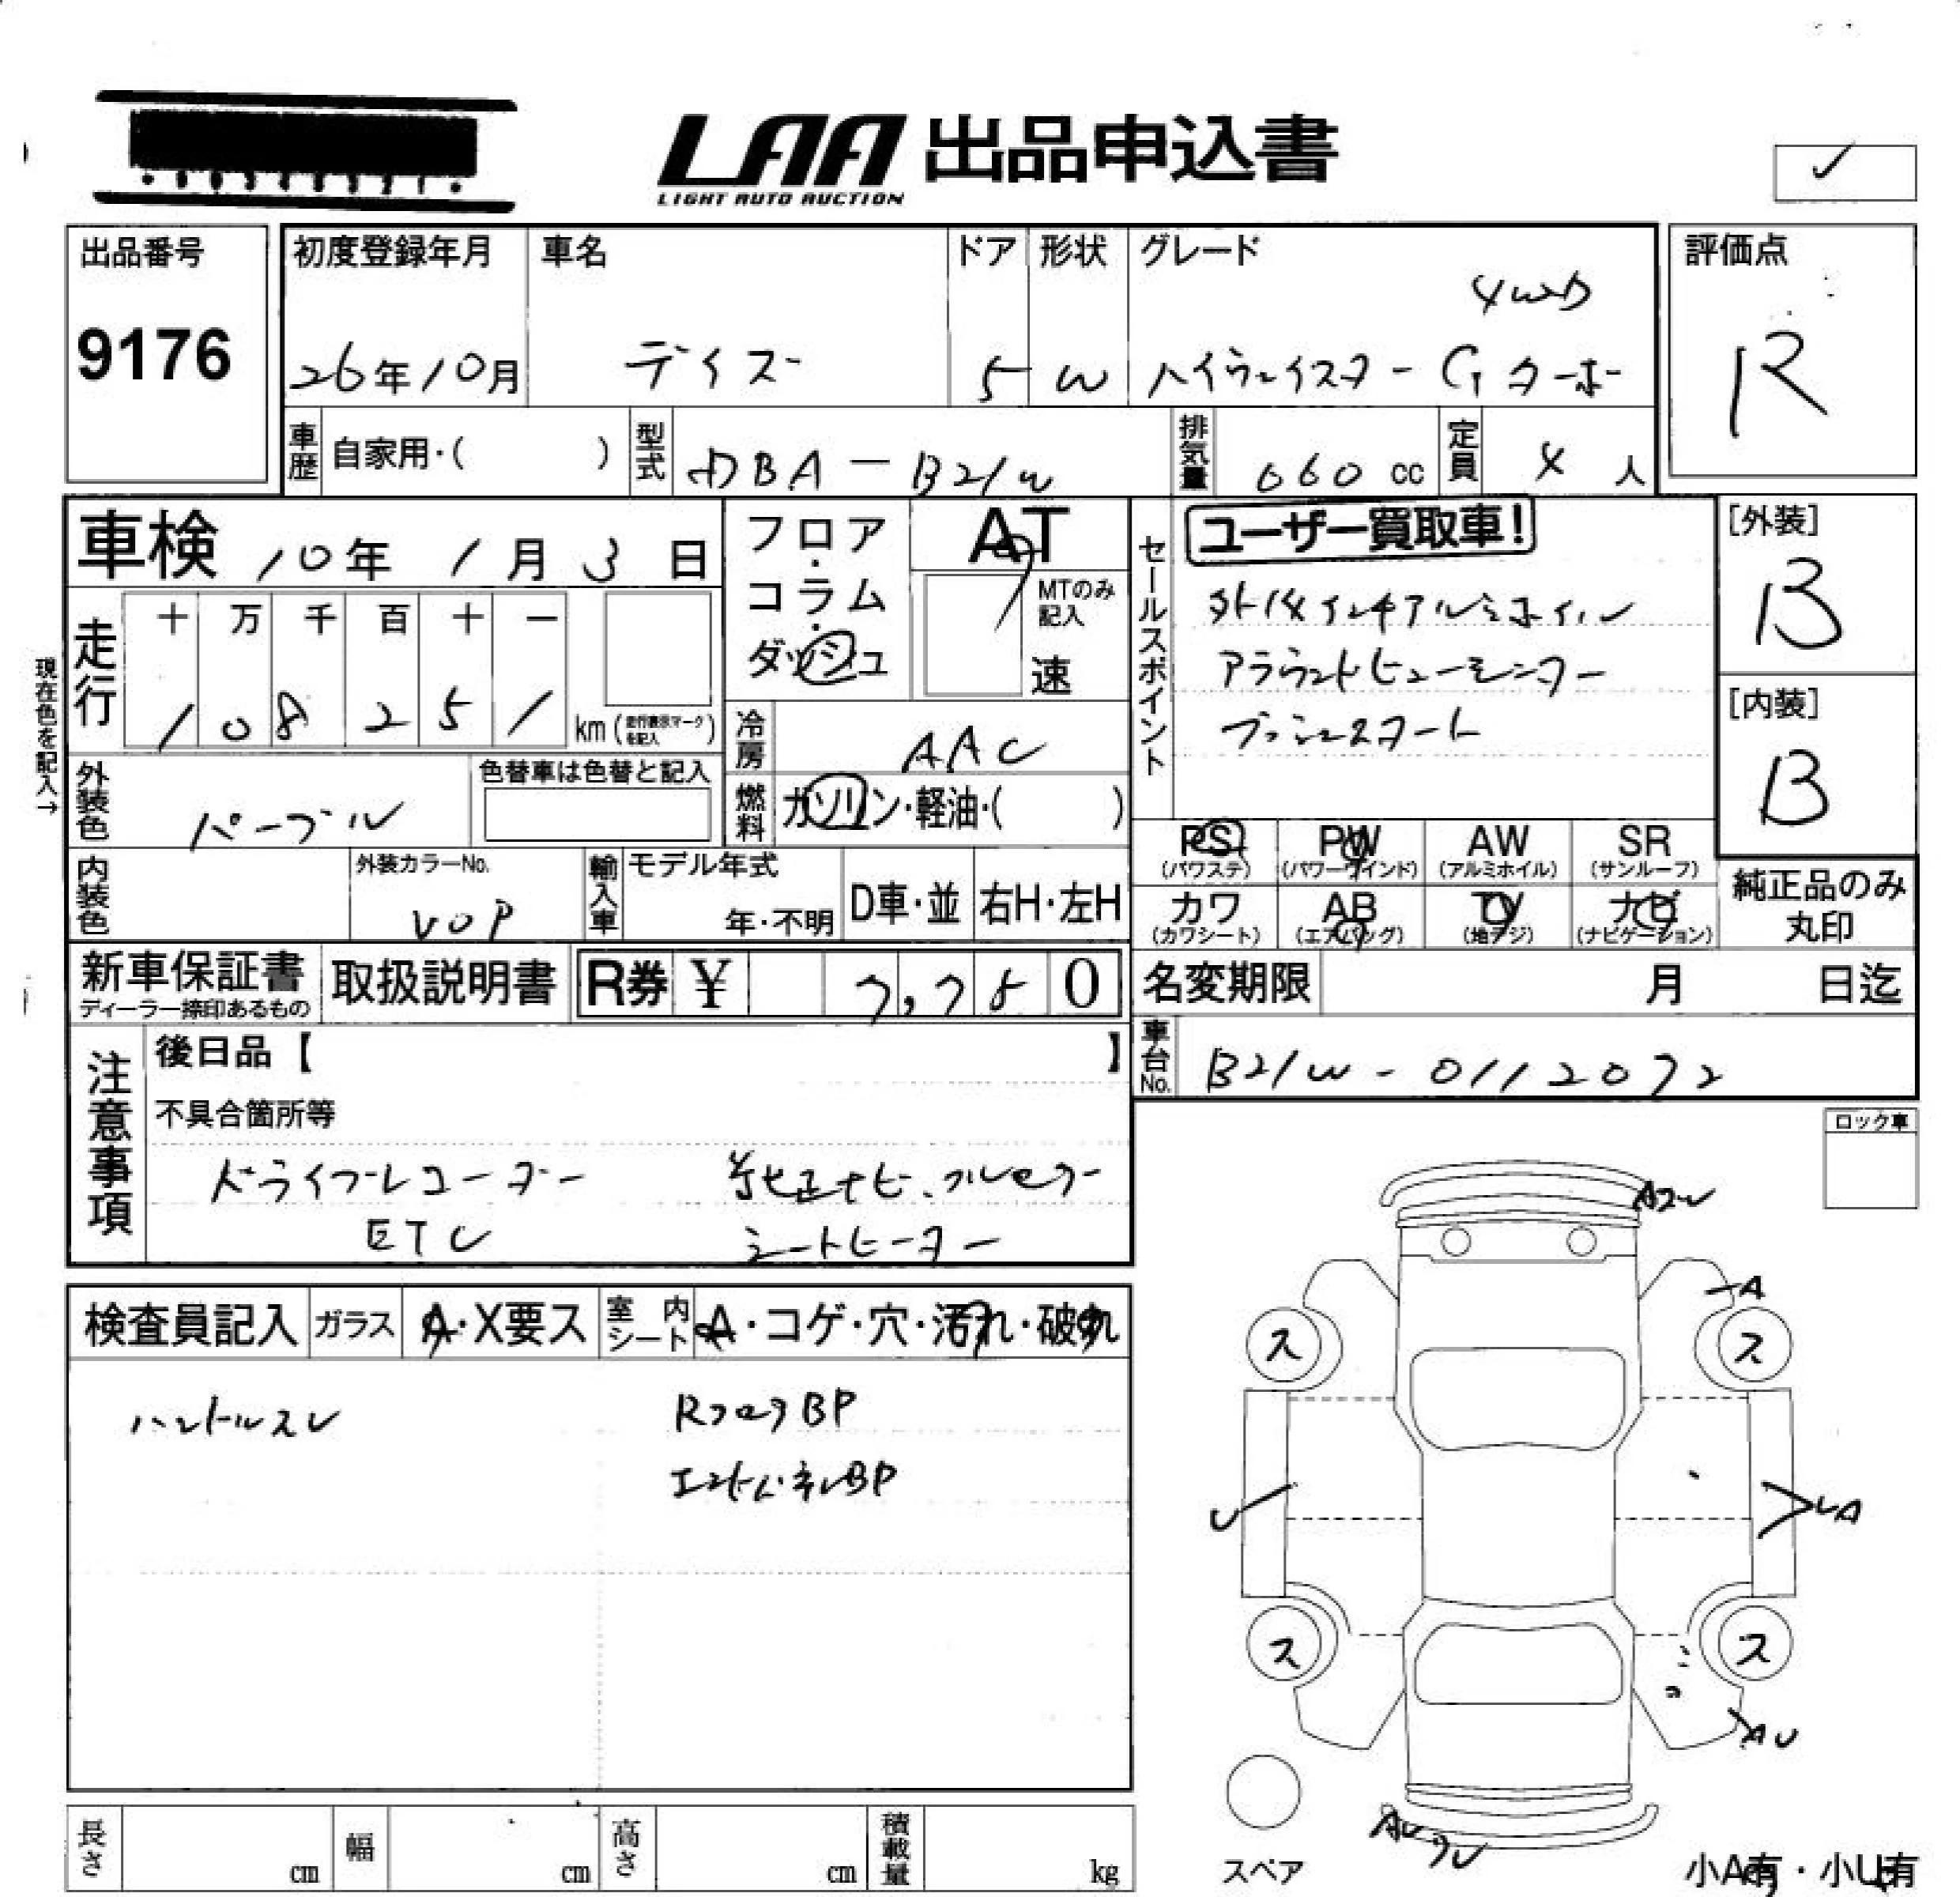 LAA 出品申込書
LIGHT AUTO AUCTION
✓
出品番号
9176
初度登録年月
26年10月
車名
デイズ
ドア
5
形状
W
グレード
4WD
ハイウェイスター Gターボ
評価点
R
車歴 自家用・( )
型式 DBA-B21W
排気量 660 cc
定員 4 人
車検 10年 1月 3日
フロア・コラム・ダッシュ
AT
MTのみ記入
速
セールスポイント
ユーザー買取車!
外15インチアルミホイル
アラウンドビューモニター
プッシュスタート
[外装]
B
[内装]
B
現在色を記入→
走行
十 万 千 百 十 一
1 0 8 2 5 1
km (走行表示マークを記入)
冷房 AAC
外装色 パープル
色替車は色替と記入
燃料 ガソリン・軽油・( )
PS (パワステ)
PW (パワーウインド)
AW (アルミホイル)
SR (サンルーフ)
カワ (カワシート)
AB (エアバッグ)
TV (地デジ)
ナビ (ナビゲーション)
純正品のみ丸印
内装色
外装カラーNo.
VOP
輸入車
モデル年式
年・不明
D車・並
右H・左H
新車保証書
ディーラー捺印あるもの
取扱説明書
R券 ¥ 7,780
名変期限 月 日迄
車台No. B21W-0112072
注意事項
後日品【 】
不具合箇所等
ドライブレコーダー 純正ナビ、フルセグ
ETC シートヒーター
ロック車
検査員記入
ガラス A・X要ス
室内シート A・コゲ・穴・汚れ・破れ
ハンドルスレ RフロアBP
エンドパネルBP
A
ス ス
U
UA
ス ス
AU
スペア
小A有・小U有
長さ cm
幅 cm
高さ cm
積載量 kg